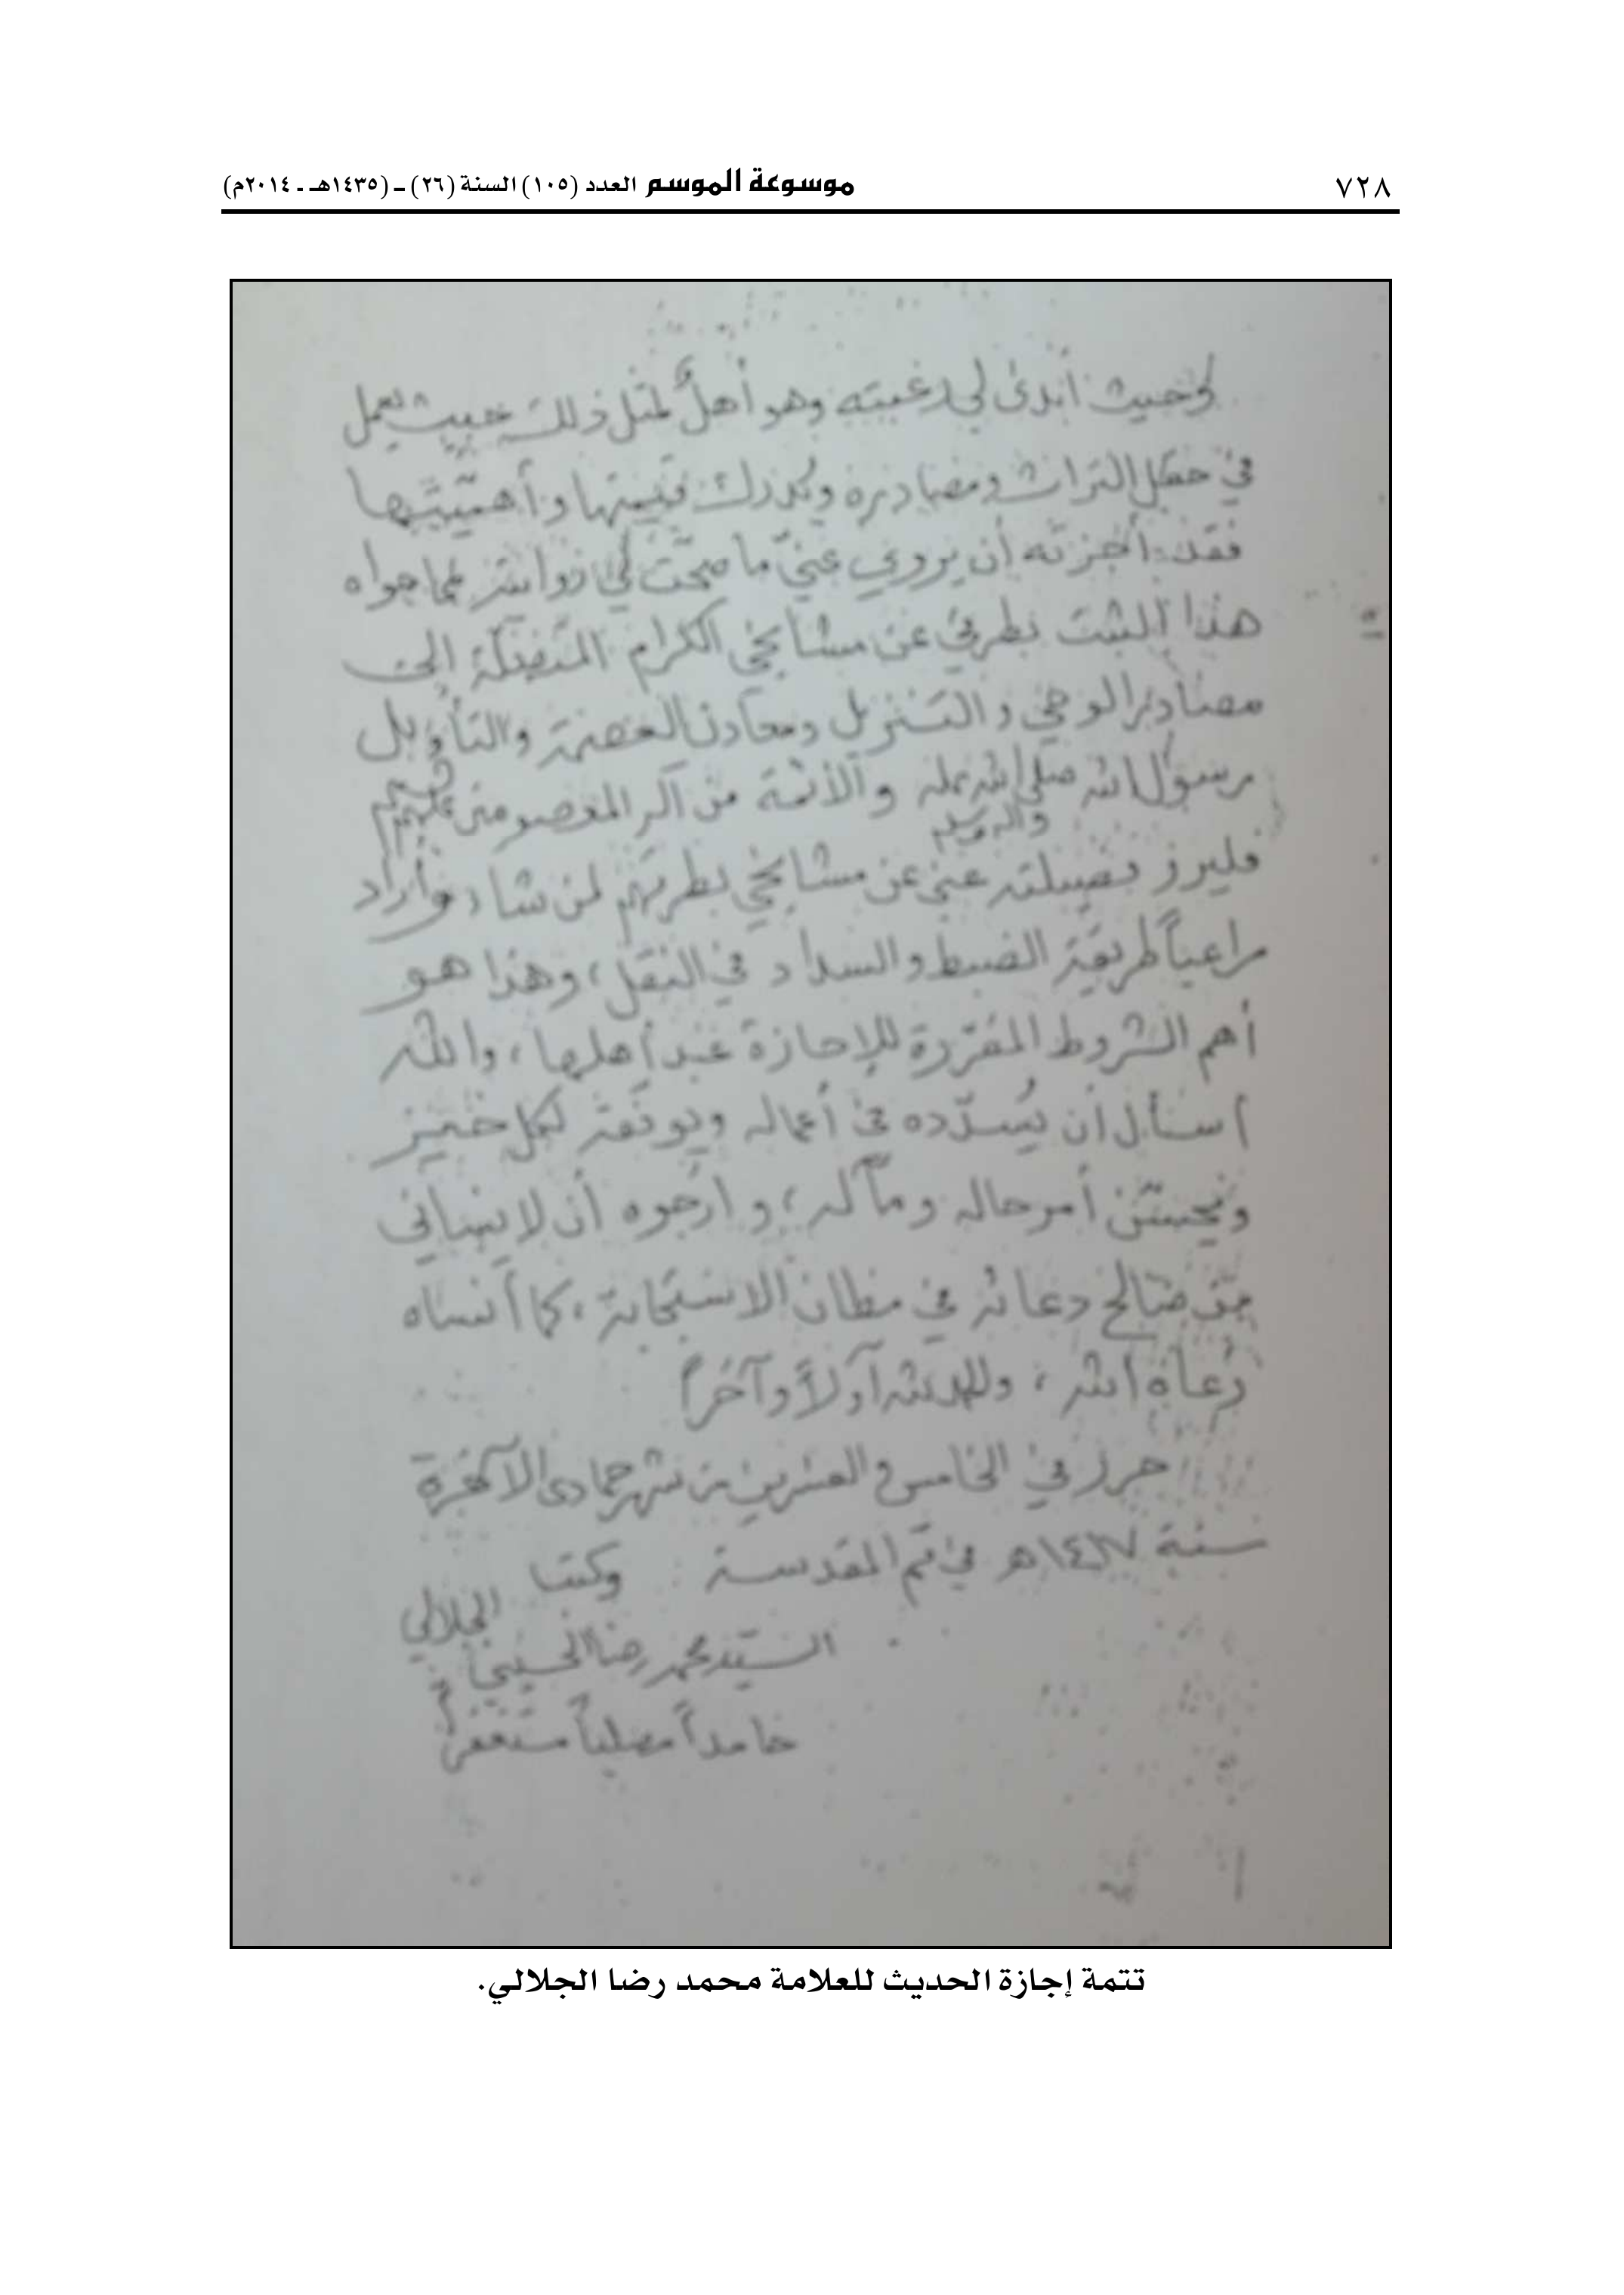 ٧٢٨
موسوعة الموسم العدد (١٠٥) السنة (٢٦) ـ (١٤٣٥هـ ـ ٢٠١٤م)
وحيث أبدى لي رغبته وهو أهلٌ لمثل ذلك حيث يعمل
في حقل التراث ومصادره ويدرك قيمتها وأهميّتها
فقد أجزته أن يروي عنّي ما صحّت لي روايته مما حواه
هذا الثبت بطرقي عن مشايخي الكرام المتصلة إلى
مصادر الوحي والتنزيل ومعادن العصمة والتأويل
رسول الله صلى الله عليه وآله وسلم والأئمة من آله المعصومين عليهم السلام
فليرو فضيلته عني عن مشايخي بطرقهم لمن شاء وأراد
مراعياً طريقة الضبط والسداد في النقل، وهذا هو
أهم الشروط المقرّرة للإجازة عند أهلها، والله
أسأل أن يُسدّده في أعماله ويوفقه لكل خير
ويحسّن أمر حاله ومآله، وأرجوه أن لا ينساني
من صالح دعائه في مظان الاستجابة، كما أنساه
رعاه الله، ولله أولاً وآخراً
حرر في الخامس والعشرين من شهر جمادى الآخرة
سنة هـ في قم المقدسة وكتب
السيّد محمد رضا الحسيني الجلالي
حامداً مصلياً مستغفراً
تتمة إجازة الحديث للعلامة محمد رضا الجلالي.